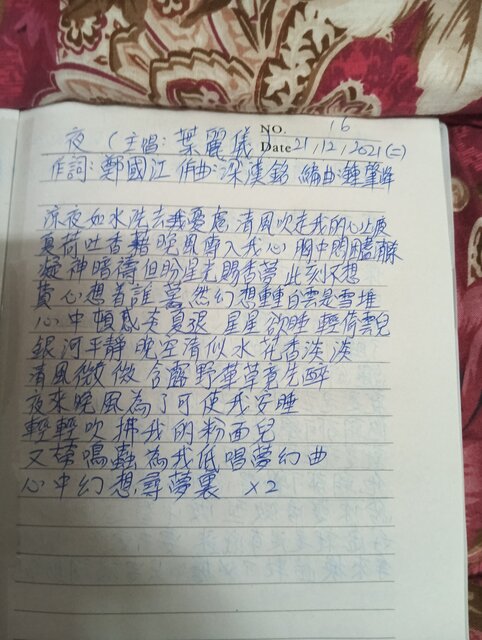 NO. 16
夜（主唱：葉麗儀）Date 21/12/2021(二)
作詞：鄭國江 作曲：深漢銘 編曲：鍾肇峰
涼夜如水洗去我憂慮 清風吹走我的心疲
夏荷吐香藉晚風傳入我心胸中悶困盡除
凝神暗禱但盼星光賜香夢 此刻不想
費心想着誰 驀然幻想轉白雲是雪堆
心中頓感失夏張 星星欲睡 輕倚雲兒
銀河平靜 晚空清似水 花香淡淡
清風微微 含露野草竟先醉
夜來晚風為了可使我安睡
輕輕吹拂我的粉面兒
又葉鳴蟲為我低唱夢幻曲
心中幻想尋夢裏 x2